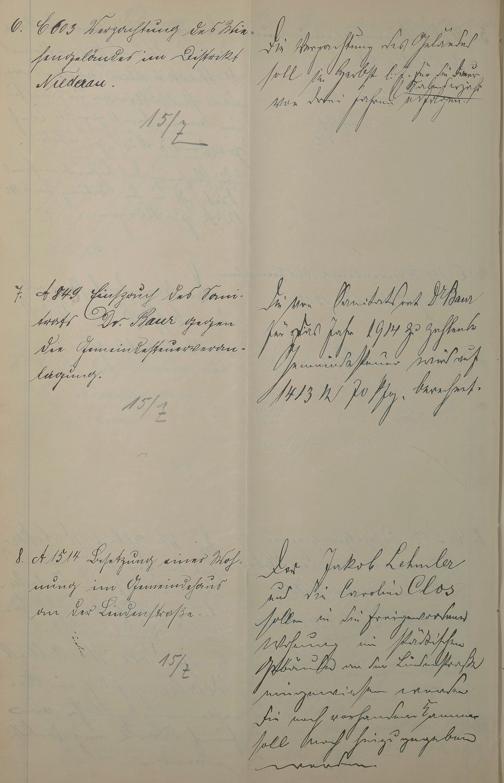 6. C 603 Verpachtung des Wie-
sengeländes im Distrikt
Niederau.
15/7
Die Verpachtung des Geländes
soll im Herbst l. J. für die Dauer
von drei Jahren erfolgen.
7. A 849 Einspruch des Sani-
tsrats Dr. Baur gegen
die Gemeindesteuerveran-
lagung.
15/7
Die von Sanitätsrat Dr Baur
für das Jahr 1914 zu zahlende
Gemeindesteuer wird auf
1413 M 70 Pfg. berechnet.
8. A 1514 Besetzung einer Woh-
nung im Gemeindehaus
an der Lindenstraße.
15/7
Der Jakob Lehmler
und die Caroline Clos
sollen in die freigewordene
Wohnung im städtischen
Gebäude an der Lindenstraße
eingewiesen werden
Die noch vorhandene Kammer
soll noch hinzugegeben
werden.